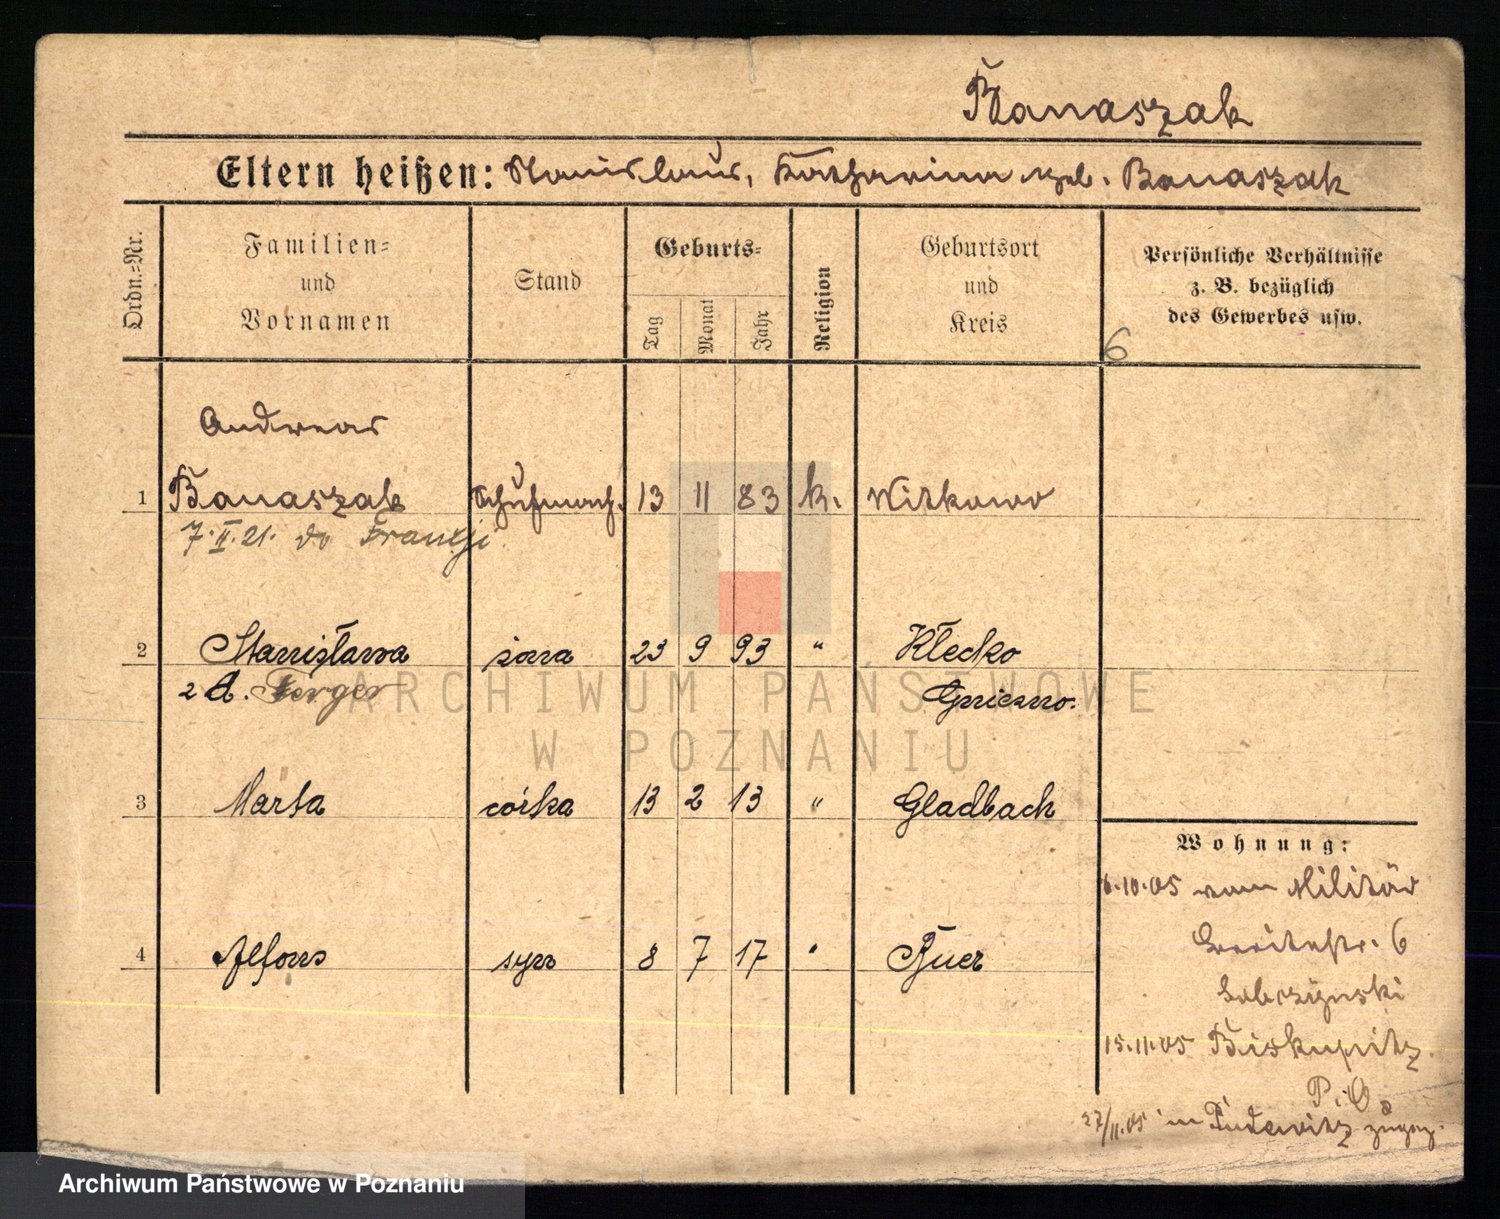 Banaszak
Eltern heißen: Stanislaus, Katharina geb. Banaszak
Ordn.=Nr.
Familien=
und
Vornamen
Stand
Geburts=
Tag
Monat
Jahr
Religion
Geburtsort
und
Kreis
Persönliche Verhältnisse
z. B. bezüglich
des Gewerbes usw.
6
Andreas
1 Banaszak Schuhmach. 13 11 83 k. Witkowo
7.II.21. do Francji
2 Stanisława żona 23 9 93 " Kłecko
z d. Ferger Gniezno.
3 Marta córka 13 2 13 " Gladbach
4 Alfons syn 8 7 17 " Buer
Wohnung:
6.10.05 vom Militär
6
15.11.05 Biskupitz
P. O.
27/11.05 in Pudewitz zugez.
ARCHIWUM PAŃSTWOWE
W POZNANIU
Archiwum Państwowe w Poznaniu